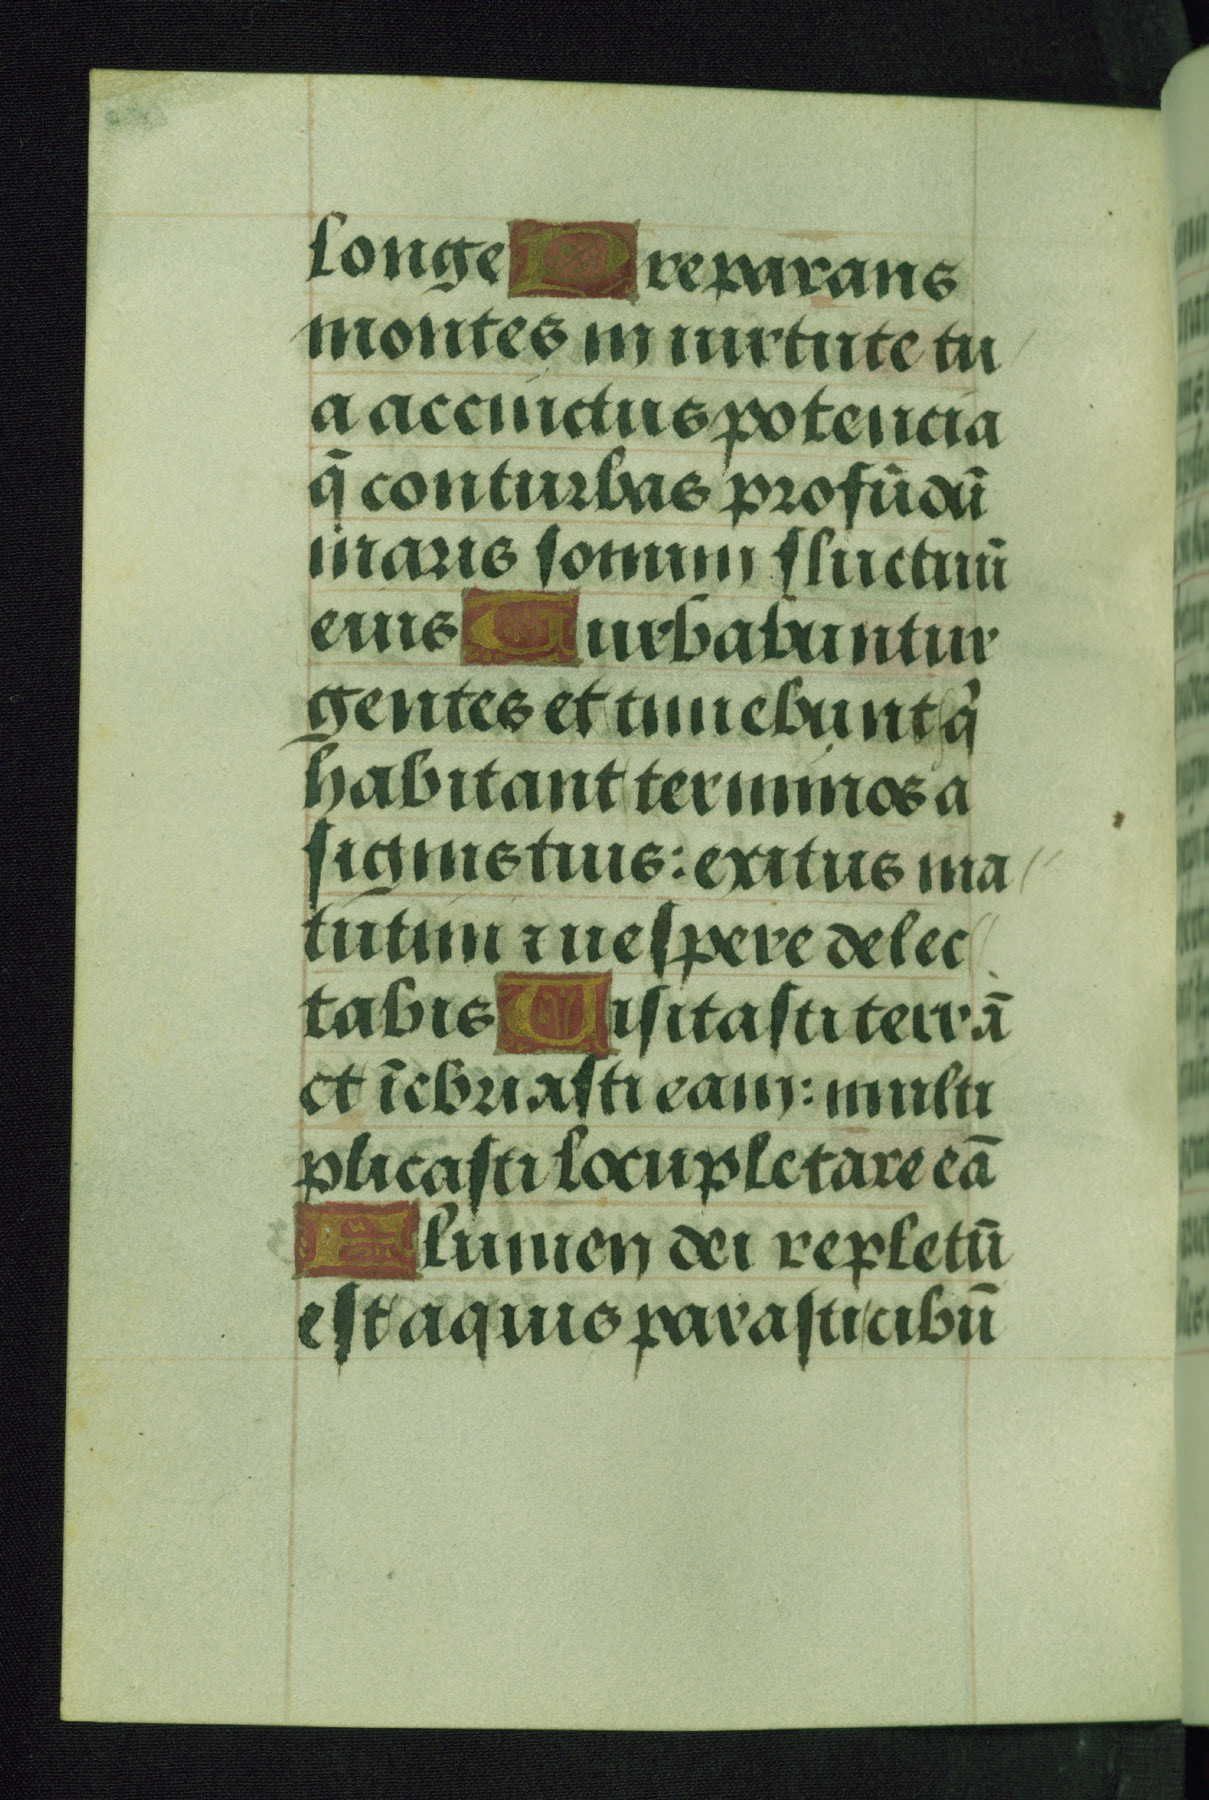 longe Preparans
montes in uirtute tu
a accinctus potencia
q̄ conturbas profūdū
maris sonum fluctuū
eius Turbabuntur
gentes et timebunt q̇
habitant terminos a
signis tuis: exitus ma
tutini ⁊ uespere delec
tabis Uisitasti terrā
et īebriasti eam: multi
plicasti locupletare eā
Flumen dei repletū
est aquis parasti cibū